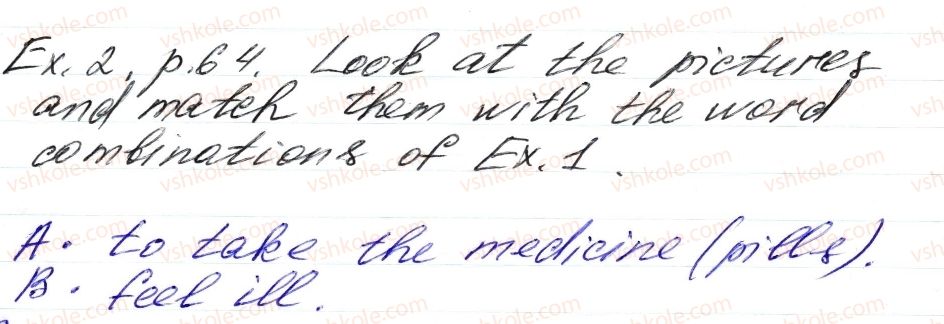 Ex. 2, p. 64. Look at the pictures
and match them with the word
combinations of Ex. 1.
A. to take the medicine (pills).
B. feel ill.